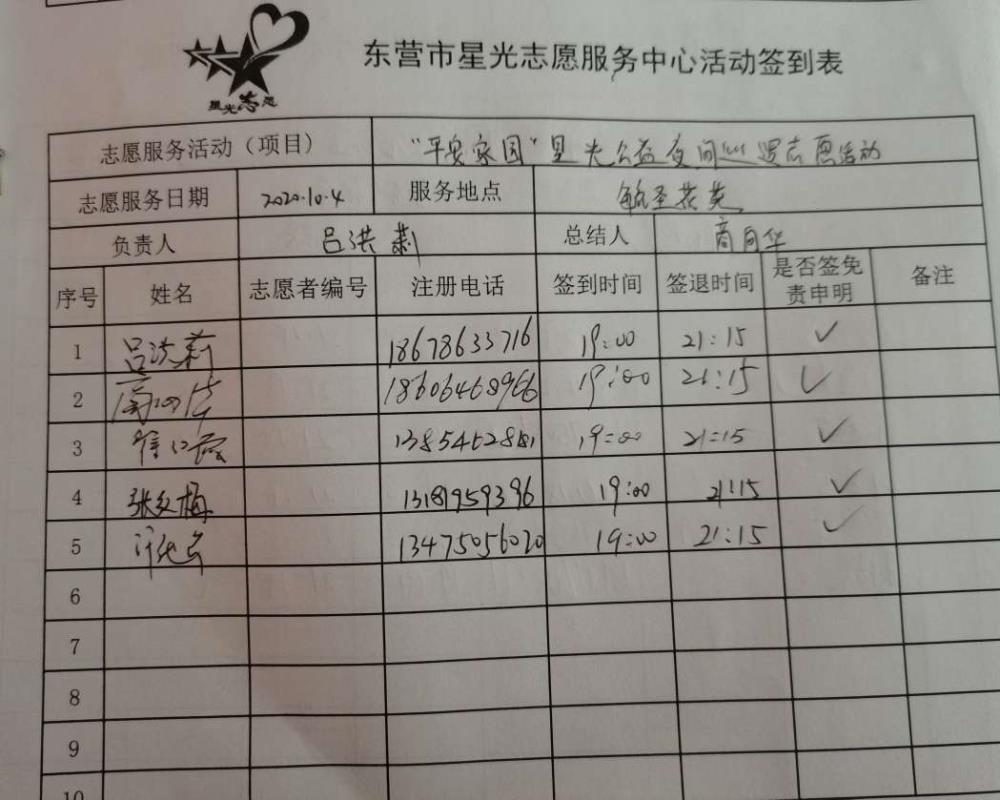 星光志愿
东营市星光志愿服务中心活动签到表
志愿服务活动（项目） “平安家园”星光公益夜间巡逻志愿活动
志愿服务日期 2020.10.4 服务地点
负责人 吕洪莉 总结人 商同华
序号 姓名 志愿者编号 注册电话 签到时间 签退时间 是否签免责申明 备注
1 吕洪莉 18678633716 19:00 21:15 ✓
2 18606468966 19:00 21:15 ✓
3 19:00 21:15 ✓
4 张红梅 13189959396 19:00 21:15 ✓
5 13475056020 19:00 21:15 ✓
6
7
8
9
10